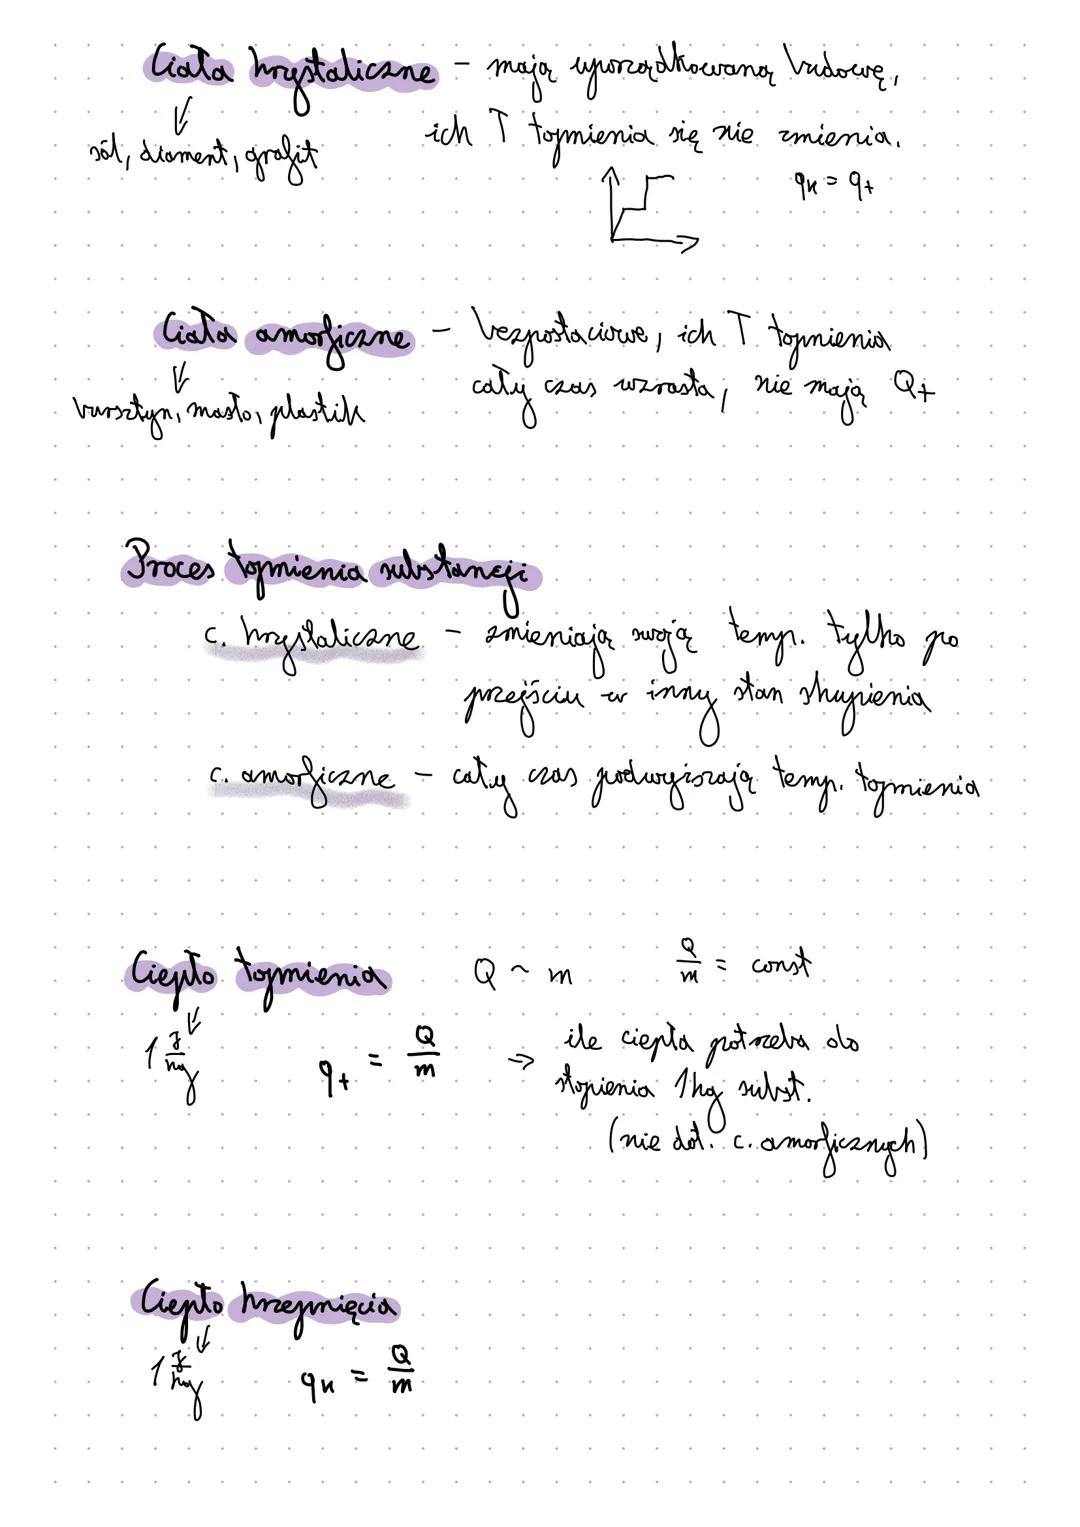 Ciała krystaliczne - mają uporządkowaną budowę,
sól, diament, grafit
ich T topnienia się nie zmienia.
qk = qt
Ciała amorficzne - bezpostaciowe, ich T topnienia
bursztyn, masło, plastik
cały czas wzrasta, nie mają Qt
Proces topnienia substancji
c. krystaliczne - zmieniają swoją temp. tylko po
przejściu w inny stan skupienia
c. amorficzne - cały czas podwyższają temp. topnienia
Ciepło topnienia Q ~ m Q/m = const
1 J/kg qt = Q/m => ile ciepła potrzeba do
stopienia 1kg subst.
(nie dot. c. amorficznych)
Ciepło krzepnięcia
1 J/kg qk = Q/m